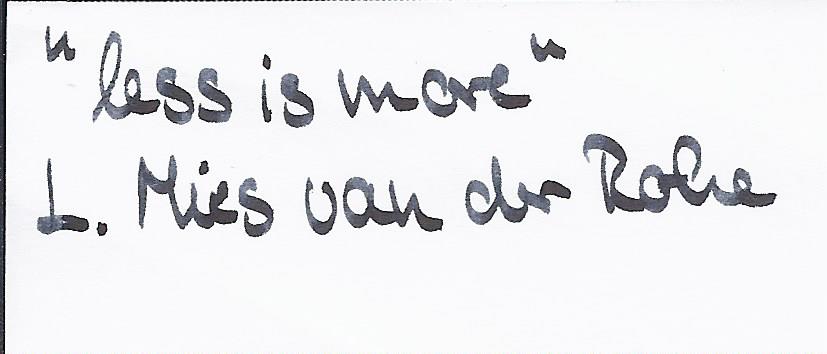 "less is more"
L. Mies van der Rohe